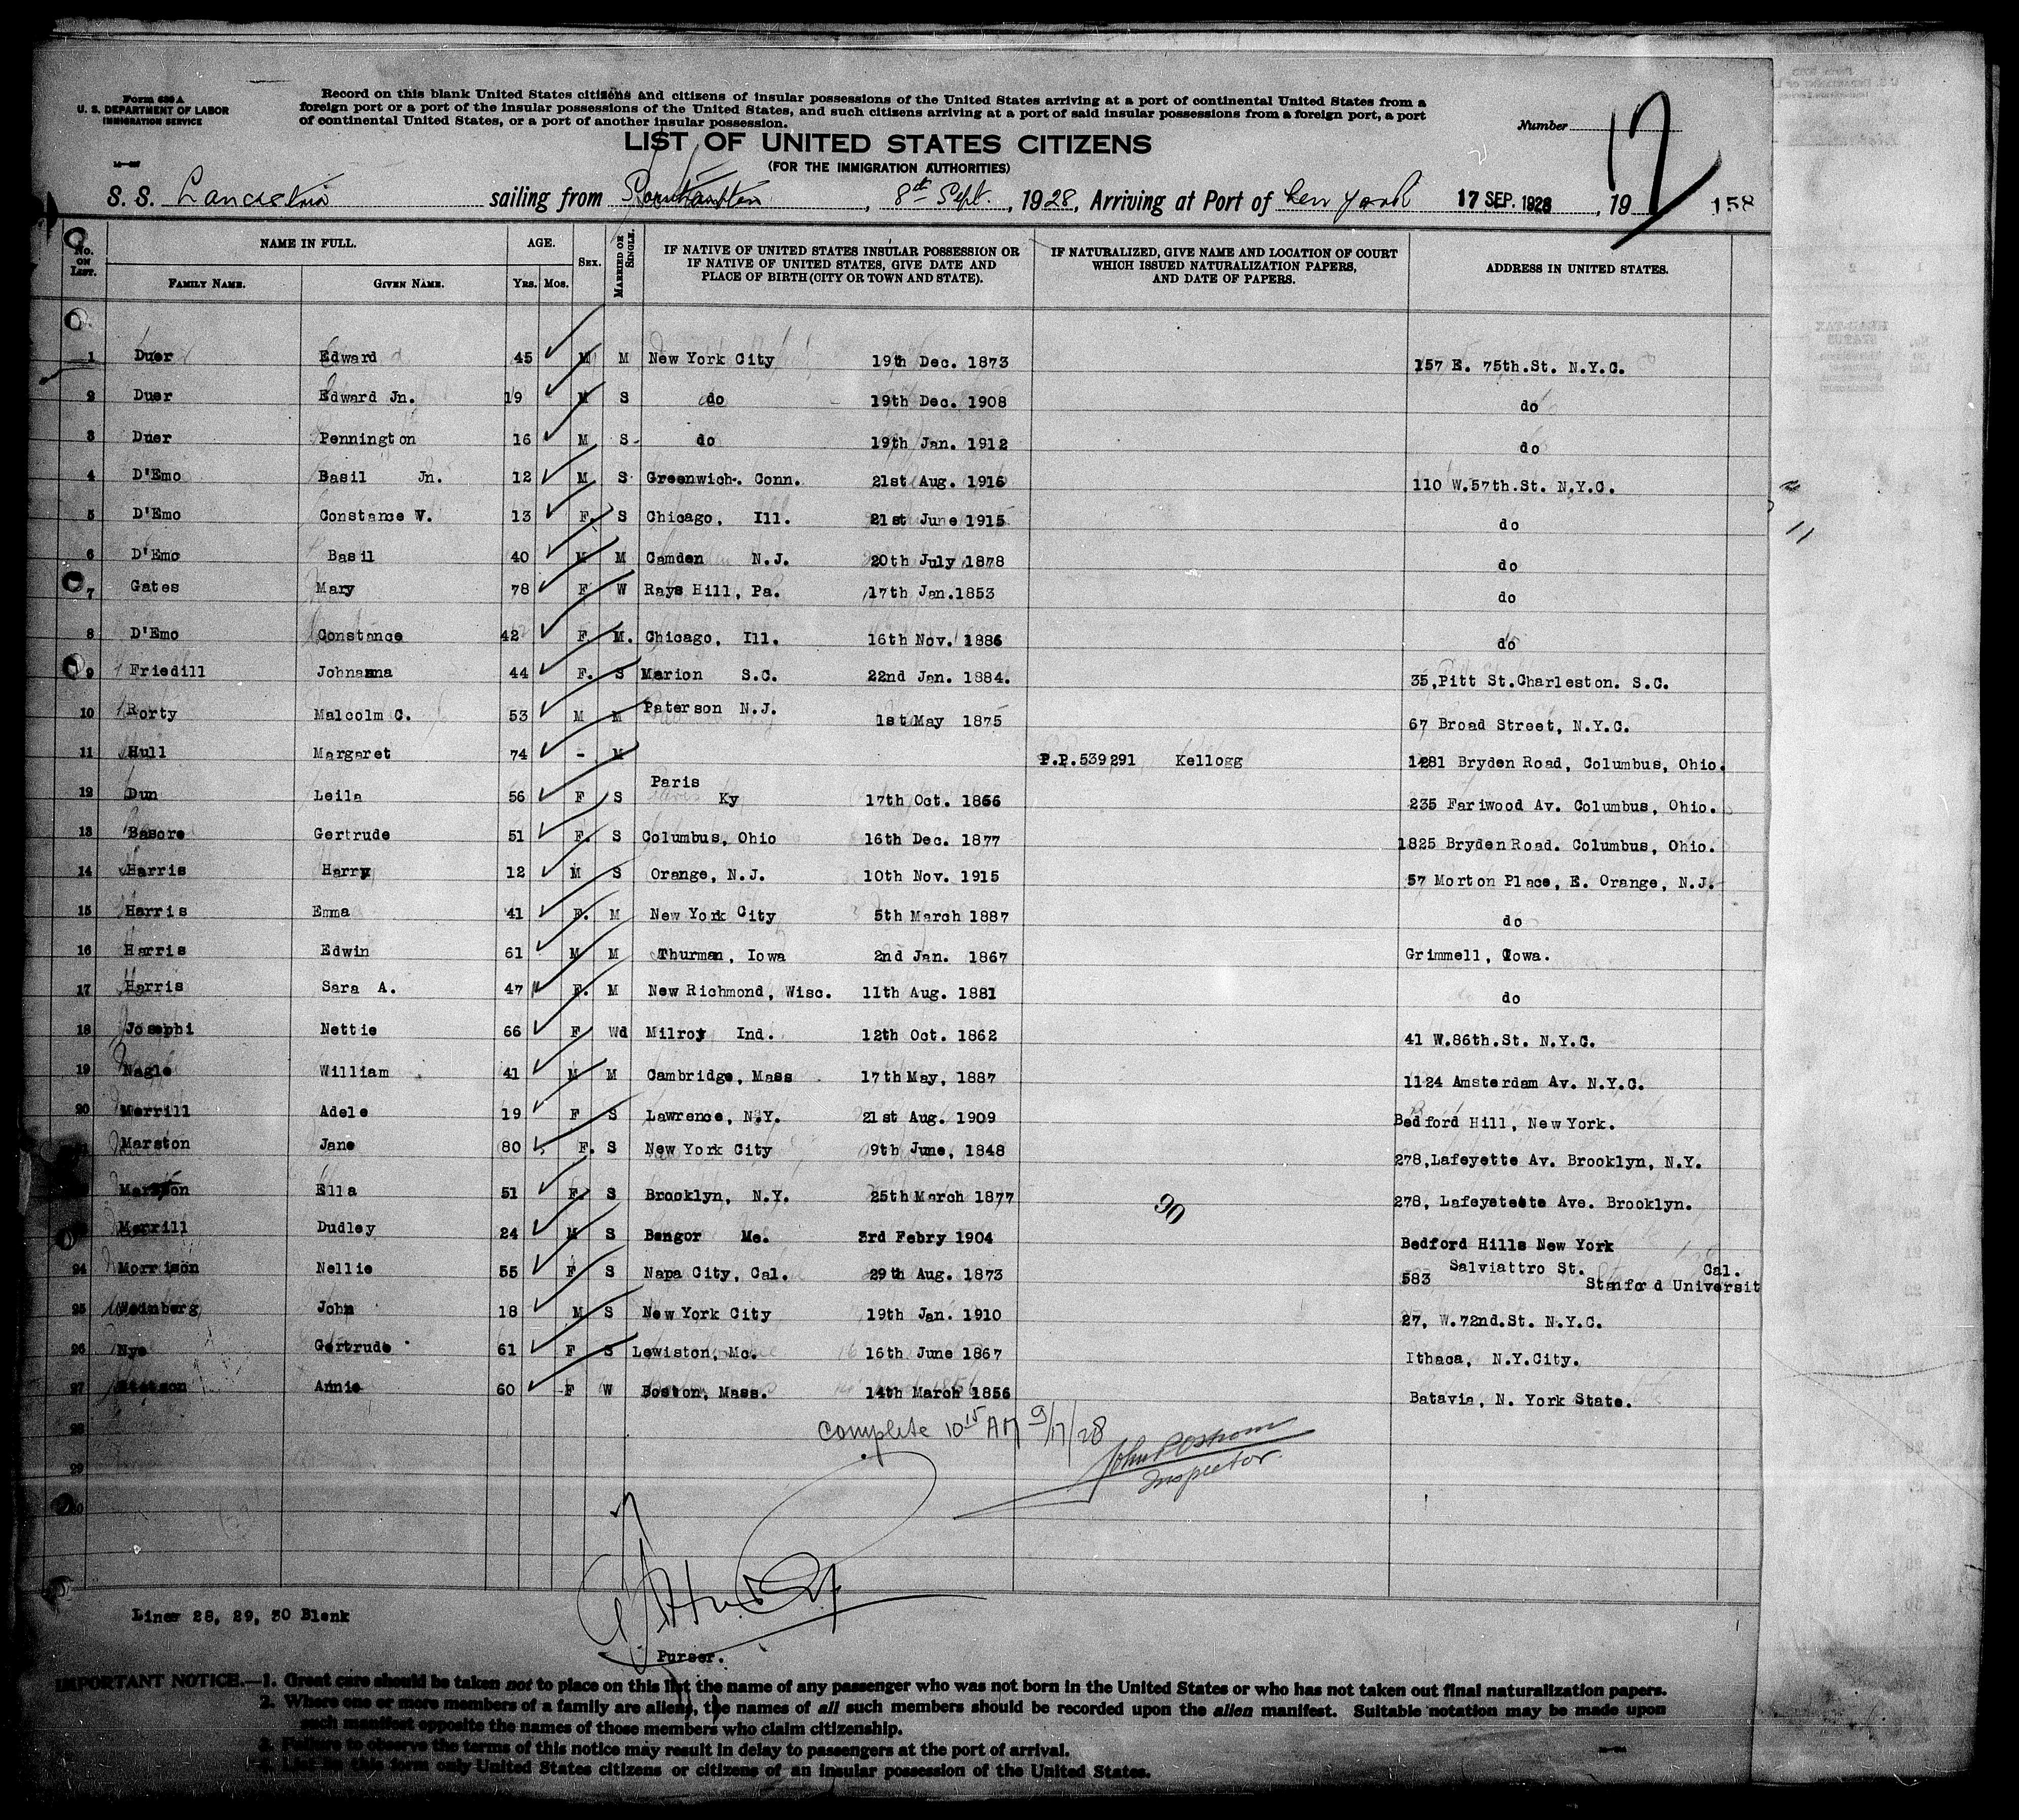 Form 630 A
U. S. DEPARTMENT OF LABOR
IMMIGRATION SERVICE
Record on this blank United States citizens and citizens of insular possessions of the United States arriving at a port of continental United States from a
foreign port or a port of the insular possessions of the United States, and such citizens arriving at a port of said insular possessions from a foreign port, a port
of continental United States, or a port of another insular possession.
Number 12
LIST OF UNITED STATES CITIZENS
(FOR THE IMMIGRATION AUTHORITIES)
S. S. Lancastria sailing from Southampton, 8th Sept., 1928, Arriving at Port of New York 17 SEP. 1928, 19 158
No. ON LIST. NAME IN FULL. AGE. SEX. MARRIED OR SINGLE. IF NATIVE OF UNITED STATES INSULAR POSSESSION OR IF NATIVE OF UNITED STATES, GIVE DATE AND PLACE OF BIRTH (CITY OR TOWN AND STATE). IF NATURALIZED, GIVE NAME AND LOCATION OF COURT WHICH ISSUED NATURALIZATION PAPERS, AND DATE OF PAPERS. ADDRESS IN UNITED STATES.
FAMILY NAME. GIVEN NAME. YRS. MOS.
1 Duer Edward 45 M M New York City 19th Dec. 1873 157 E. 75th.St. N.Y.C.
2 Duer Edward Jn. 19 M S do 19th Dec. 1908 do
3 Duer Pennington 16 M S do 19th Jan. 1912 do
4 D'Emo Basil Jn. 12 M S Greenwich. Conn. 21st Aug. 1916 110 W.57th.St. N.Y.C.
5 D'Emo Constance W. 13 F. S Chicago, Ill. 21st June 1915 do
6 D'Emo Basil 40 M M Camden N.J. 20th July 1878 do
7 Gates Mary 78 F W Rays Hill, Pa. 17th Jan.1853 do
8 D'Emo Constance 42 F M. Chicago, Ill. 16th Nov. 1886 do
9 Friedill Johnanna 44 F. S Marion S.C. 22nd Jan. 1884. 35,Pitt St.Charleston. S.C.
10 Rorty Malcolm C. 53 M M Paterson N.J. 1st May 1875 67 Broad Street, N.Y.C.
11 Hull Margaret 74 - M P.P.539291 Kellogg 1281 Bryden Road, Columbus, Ohio.
12 Dun Leila 56 F S Paris Ky 17th Oct. 1866 235 Fariwood Av. Columbus, Ohio.
13 Basore Gertrude 51 F. S Columbus, Ohio 16th Dec. 1877 1825 Bryden Road. Columbus, Ohio.
14 Harris Harry 12 M S Orange, N.J. 10th Nov. 1915 57 Morton Place, E. Orange, N.J.
15 Harris Emma 41 F. M New York City 5th March 1887 do
16 Harris Edwin 61 M M Thurman, Iowa 2nd Jan. 1867 Grimmell, Iowa.
17 Harris Sara A. 47 F. M New Richmond, Wisc. 11th Aug. 1881 do
18 Josephi Nettie 66 F Wd Milroy Ind. 12th Oct. 1862 41 W.86th.St. N.Y.C.
19 Nagle William 41 M M Cambridge, Mass 17th May, 1887 1124 Amsterdam Av. N.Y.C.
20 Merrill Adele 19 F S Lawrence, N.Y. 21st Aug. 1909 Bedford Hill, New York.
Marston Jane 80 F. S New York City 9th June, 1848 278,Lafeyette Av. Brooklyn, N.Y.
Marston Ella 51 F. S Brooklyn, N.Y. 25th March 1877 278, Lafeyeteste Ave. Brooklyn.
Merrill Dudley 24 M S Bangor Me. 3rd Febry 1904 Bedford Hills New York
24 Morrison Nellie 55 F S Napa City, Cal. 29th Aug. 1873 583 Salviattro St. Stanford Universit Cal.
25 Weinberg John 18 M S New York City 19th Jan. 1910 27, W.72nd.St. N.Y.C.
26 Nye Gertrude 61 F S Lewiston, Me. 16th June 1867 Ithaca, N.Y.City.
27 Stetson Annie 60 F W Boston, Mass. 14th March 1856 Batavia, N. York State.
90
28
29
30
complete 10 15 AM 9/17/28
John P Osborne
Inspector.
Lines 28, 29, 30 Blank
Purser.
IMPORTANT NOTICE.—1. Great care should be taken not to place on this list the name of any passenger who was not born in the United States or who has not taken out final naturalization papers.
2. Where one or more members of a family are aliens, the names of all such members should be recorded upon the alien manifest. Suitable notation may be made upon
such manifest opposite the names of those members who claim citizenship.
3. Failure to observe the terms of this notice may result in delay to passengers at the port of arrival.
4. List on this form only United States citizens or citizens of an insular possession of the United States.